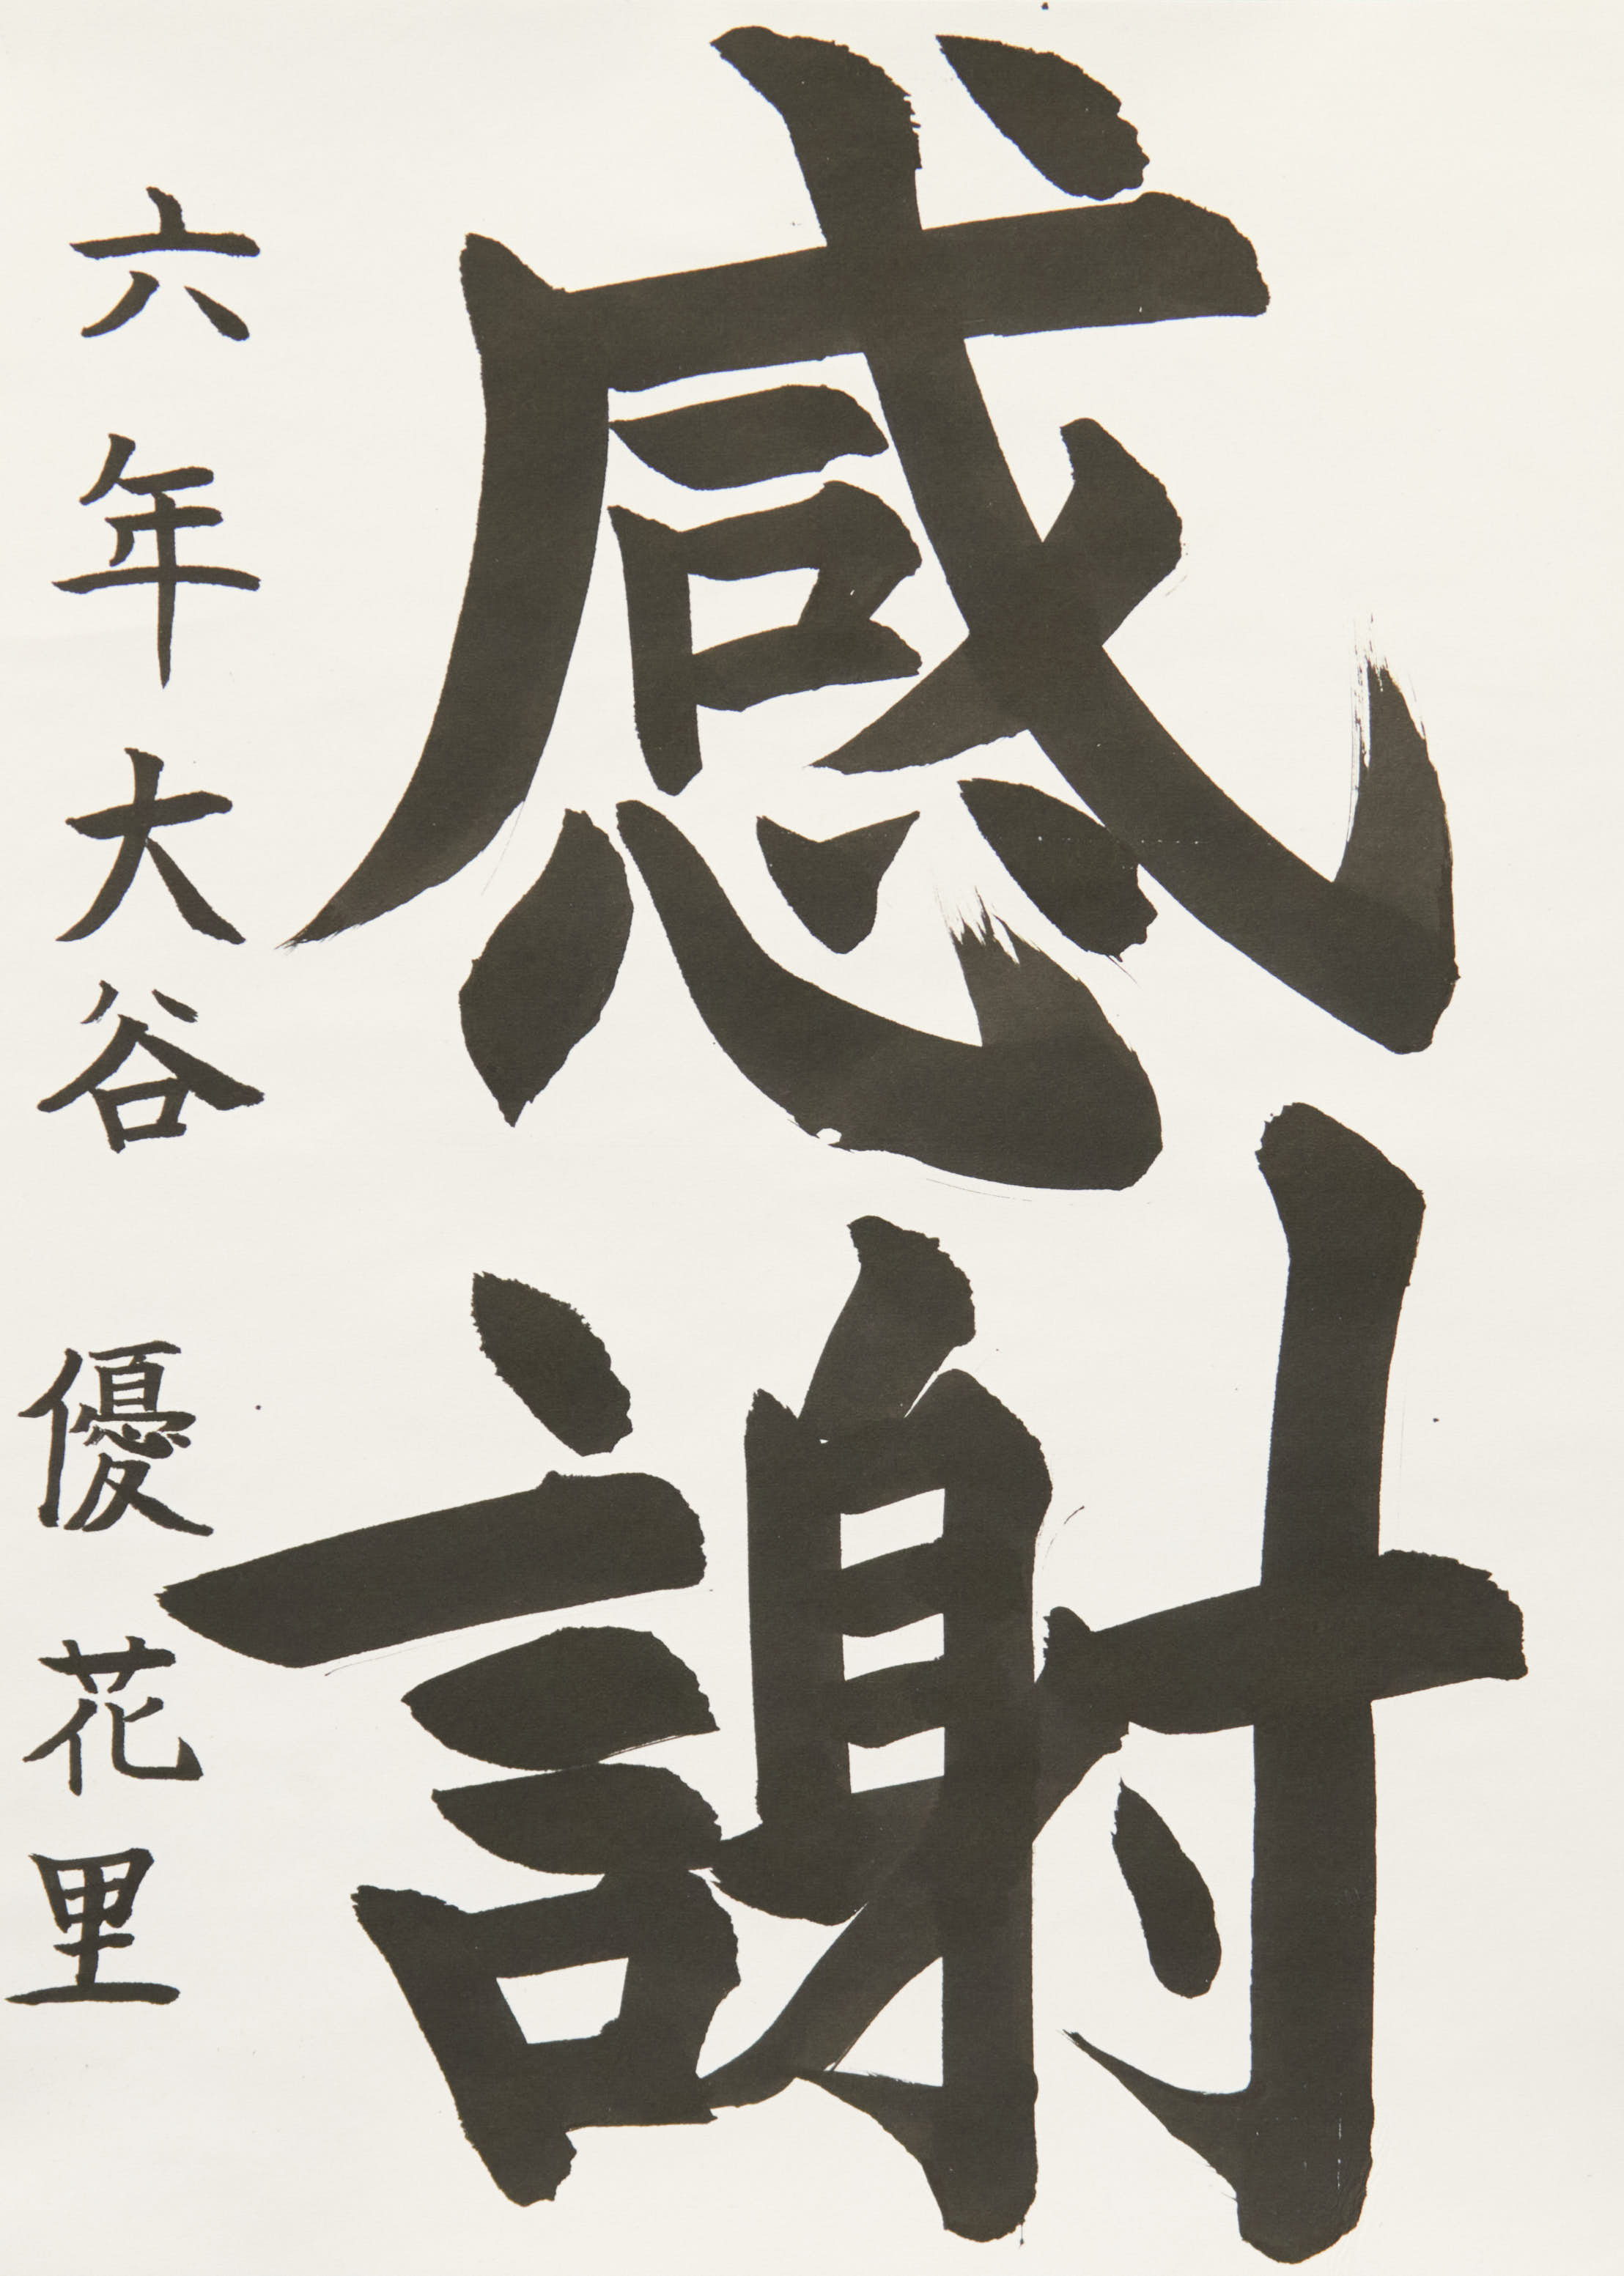 感謝
六年大谷 優花里